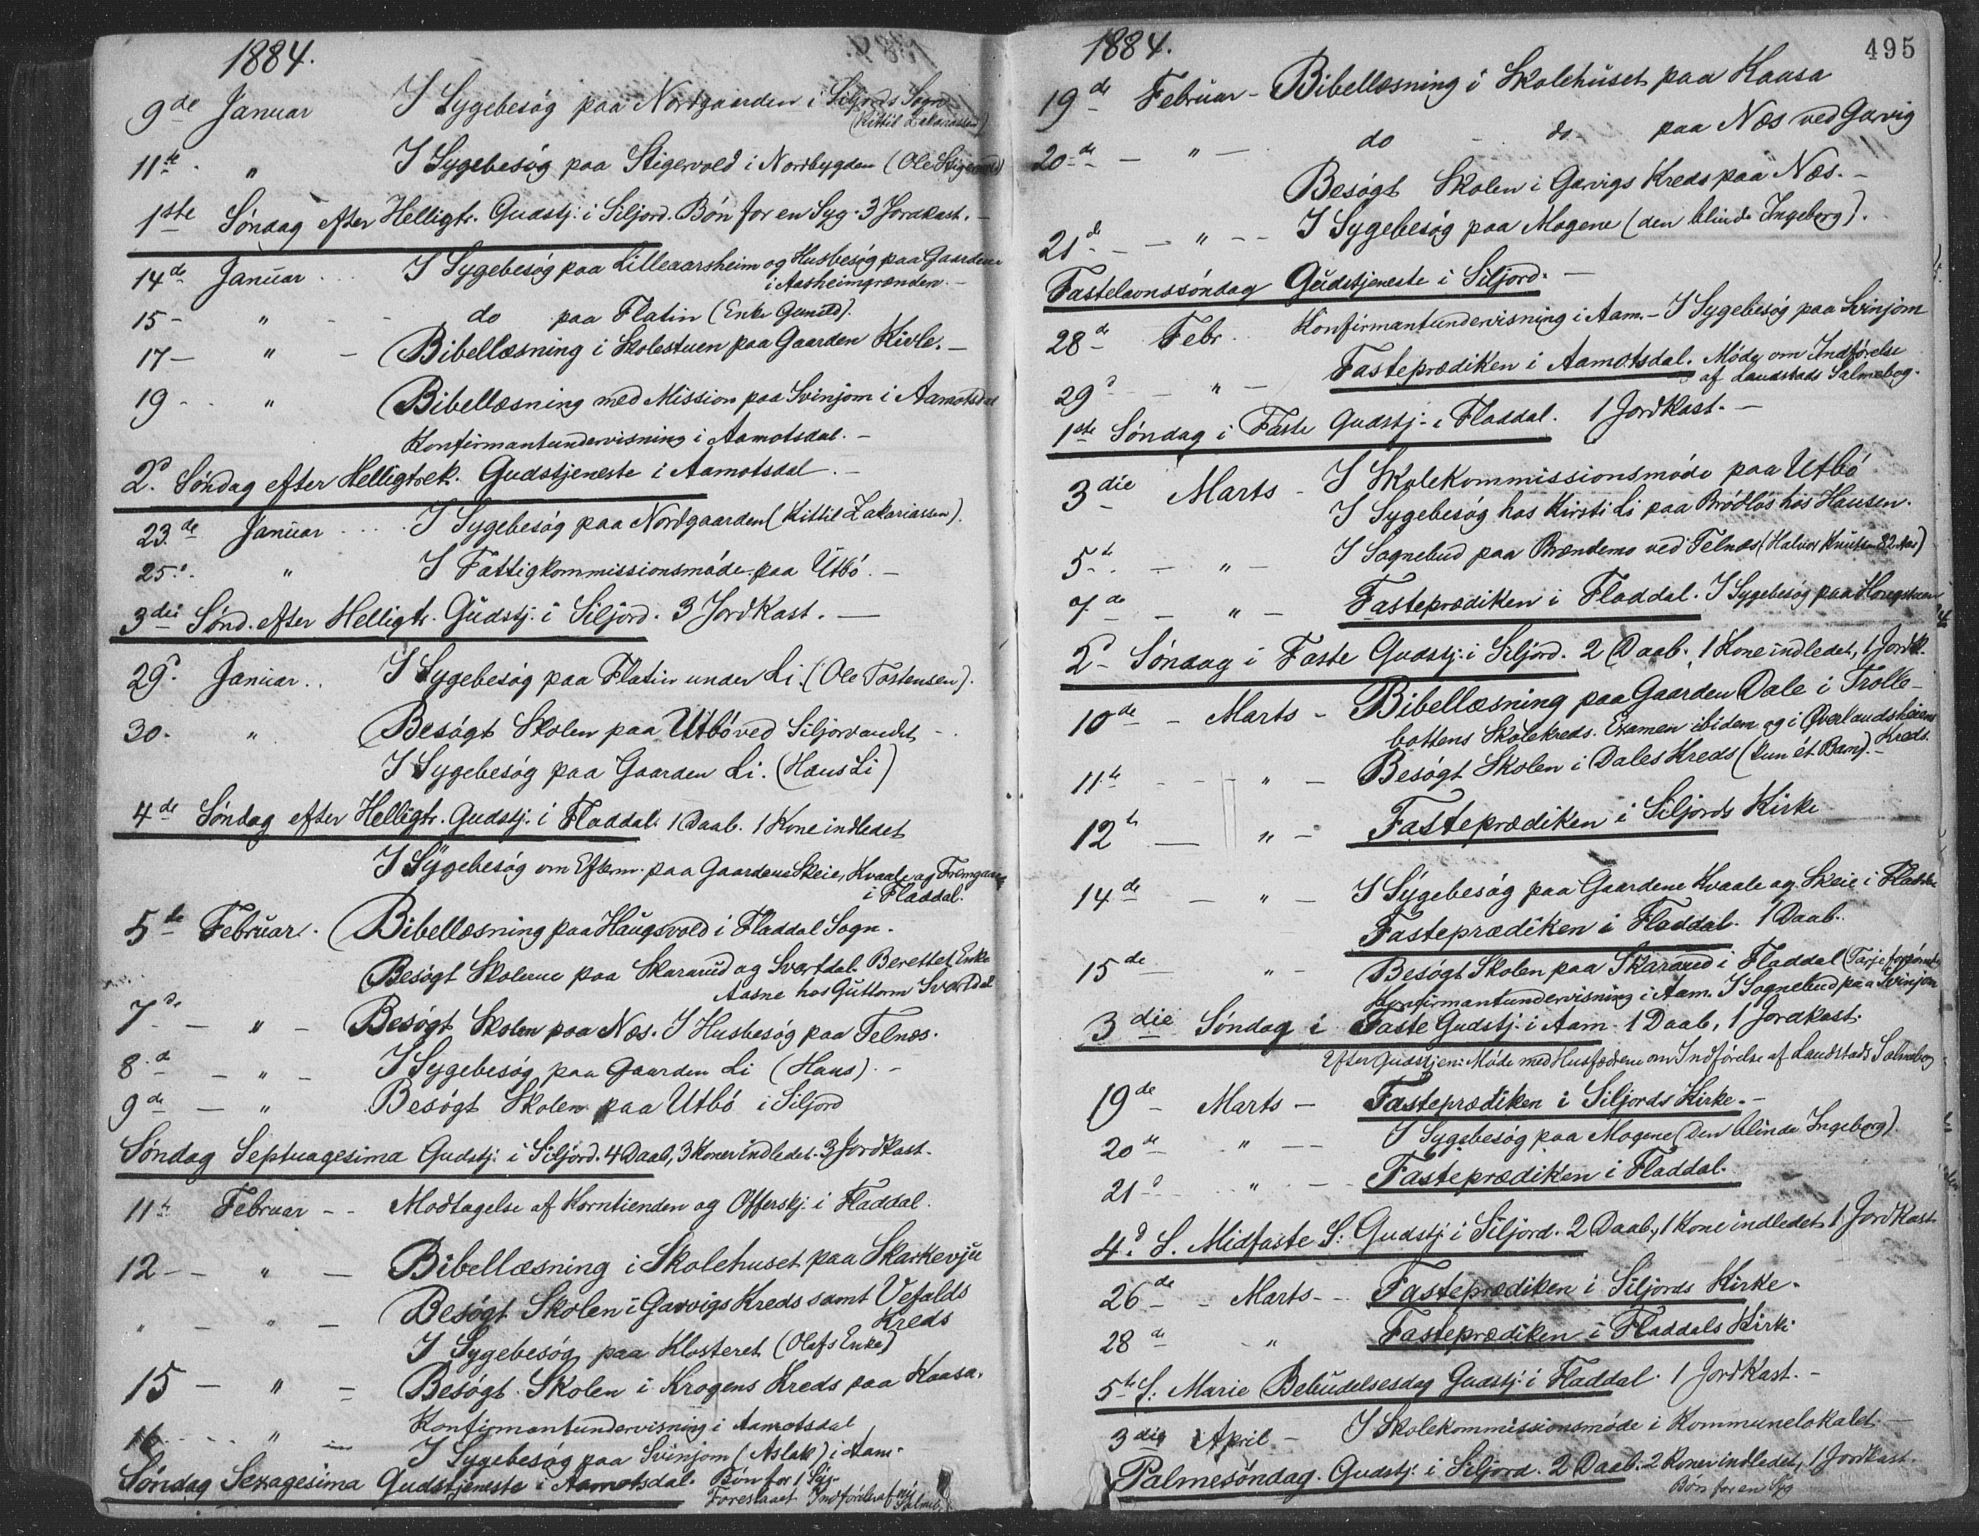 1884.
9de Januar I Sygebesøg paa Nordgaarden i Siljords Sogn
(Kittil Zakariassen)
11te " I Sygebesøg paa Stigervold i Nordbygden (Ole Stigervold)
1ste Søndag efter Helligtr. Gudstj. i Siljord. Bøn for en Syg. 3 Jordkast. –
14de Januar I Sygebesøg paa Lilleaarsheim og Husbesøg paa Gaardene
i Aasheimgrænden. –
15 – " – – do paa Flatin (Enke Gunild).
17 – " – Bibellæsning i Skolestuen paa Gaarden Kivle. –
19 – " Bibellæsning med Mission paa Svinjom i Aamotsdal
Konfirmantundervisning i Aamotsdal. –
2d Søndag efter Helligtrek. Gudstjeneste i Aamotsdal. –
23de Januar I Sygebesøg paa Nordgaarden (Kittil Zakariassen).
25d " I Fattigkommissionsmøde paa Utbø. –
3die Sønd. efter Helligtr. Gudstj. i Siljord. 3 Jordkast. –
29d Januar I Sygebesøg paa Flatin under Li. (Ole Tostensen).
30. " Besøgt Skolen paa Utbø ved Siljorvandet –
I Sygebesøg paa Gaarden Li. (Hans Li)
4de Søndag efter Helligtr. Gudstj. i Fladdal. 1 Daab. 1 Kone indledet
I Sygebesøg om Efterm. paa Gaardene Skeie, Kvaale og Fremgaarden
i Fladdal.
5te Februar. Bibellæsning paa Haugsvold i Fladdal Sogn.
Besøgt Skolerne paa Skararud og Svartdal. Berettet Enke
Aasne hos Guttorm Svartdal
7de – " – Besøgt Skolen paa Næs. I Husbesøg paa Telnæs.
8d – " – I Sygebesøg paa Gaarden Li (Hans). –
9de – " Besøgt Skolen paa Utbø i Siljord
Søndag Septuagesima Gudstj. i Siljord. 4 Daab, 3 Koner indledet. 3 Jordkast.
11te Februar – – Modtagelse af Korntienden og Offerskj. i Fladdal.
12 – – " – Bibellæsning i Skolehuset paa Skarkevju
" – " – Besøgt Skolen i Garvigs Kreds samt Vefalds
Kreds
I Sygebesøg paa Klosteret (Olafs Enke)
15 – " – Besøgt Skolen i Krogens Kreds paa Kaasa.
Konfirmantundervisning i Aamotsdal
16 – " – I Sygebesøg paa Svinjom (Aslak) i Aam.
Søndag Sexagesima Gudstjeneste i Aamotsdal. Bøn for 1 Syg.
Foreslaaet Indførelse af ny Salmeb.
1884. 495
19de Februar – Bibellæsning i Skolehuset paa Kaasa
20de – " – do – do paa Næs ved Garvig
Besøgt Skolen i Garvigs Kreds paa Næs. –
21d – – " – – I Sygebesøg paa Mogene (den blinde Ingeborg).
Fastelavnssøndag Gudstjeneste i Siljord. –
28de Febr. Konfirmantundervisning i Aam. – I Sygebesøg paa Svinjom
29d " – Fasteprædiken i Aamotsdal. Møde om Indførelse
af Landstads Salmebog.
1ste Søndag i Faste Gudstj. i Fladdal. 1 Jordkast. –
3die Marts – I Skolekommissionsmøde paa Utbø
I Sygebesøg hos Kirsti Li paa Brødløs hos Hansen.
5te – " – I Sognebud paa Brændemo ved Telnæs (Halvor Knutsen 82 Aar)
7de – " – Fasteprædiken i Fladdal. I Sygebesøg paa Haugstuen
2d Søndag i Faste Gudstj. i Siljord. 2 Daab. 1 Kone indledet, 1 Jordk.
10de – Marts – Bibellæsning paa Gaarden Dale i Trolle-
bottens Skolekreds. Examen ibidem og i Øverlandsheiens
Kreds.
11te – – " – Besøgt Skolen i Dales Kreds (kun ét Barn). –
12te – " – Fasteprædiken i Siljords Kirke
14de – " – I Sygebesøg paa Gaardene Kvaale og Skeie i Fladdal
Fasteprædiken i Fladdal. 1 Daab.
15de " – Besøgt Skolen paa Skararud i Fladdal (Tarje
Konfirmantundervisning i Aam. I Sognebud paa Svinjom
3die Søndag i Faste Gudstj. i Aam. 1 Daab, 1 Jordkast.
Efter Gudstjen. Møde med Husfædrene om Indførelse af Landstads Salmebog
19de Marts – Fasteprædiken i Siljords Kirke. –
20de " – – I Sygebesøg paa Mogene (Den blinde Ingeborg)
21d " – – Fasteprædiken i Fladdal.
4d S. Midfaste S: Gudstj. i Siljord. 2 Daab, 1 Kone indledet 1 Jordkast
26de – Marts – – Fasteprædiken i Siljords Kirke.
28de " Fasteprædiken i Fladdals Kirke
5te S: Marie Bebudelsesdag Gudstj. i Fladdal. 1 Jordkast. –
3die April. – I Skolekommissionsmøde i Kommunelokalet. –
Palmesøndag. Gudstj. i Siljord. 2 Daab. 2 Koner indledet, 1 Jordkast.
Bøn for en Syg